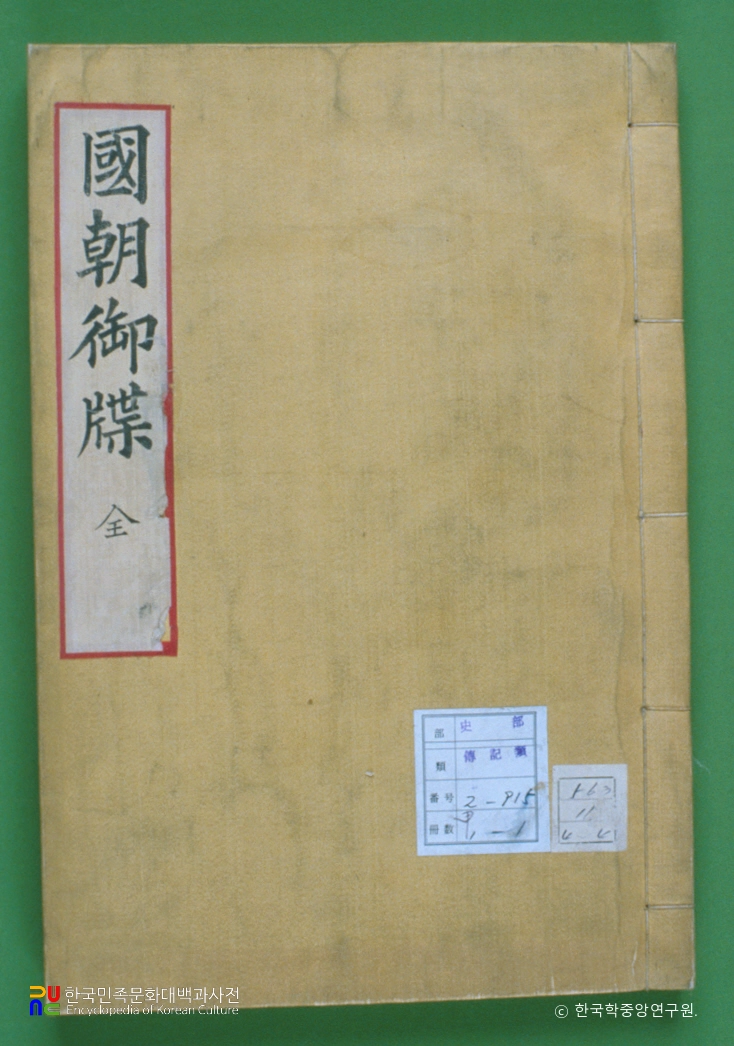 國朝御牒
全
部 史 部
類 傳記類
番号 2-915
冊数 1-1
한국민족문화대백과사전
Encyclopedia of Korean Culture
ⓒ 한국학중앙연구원.